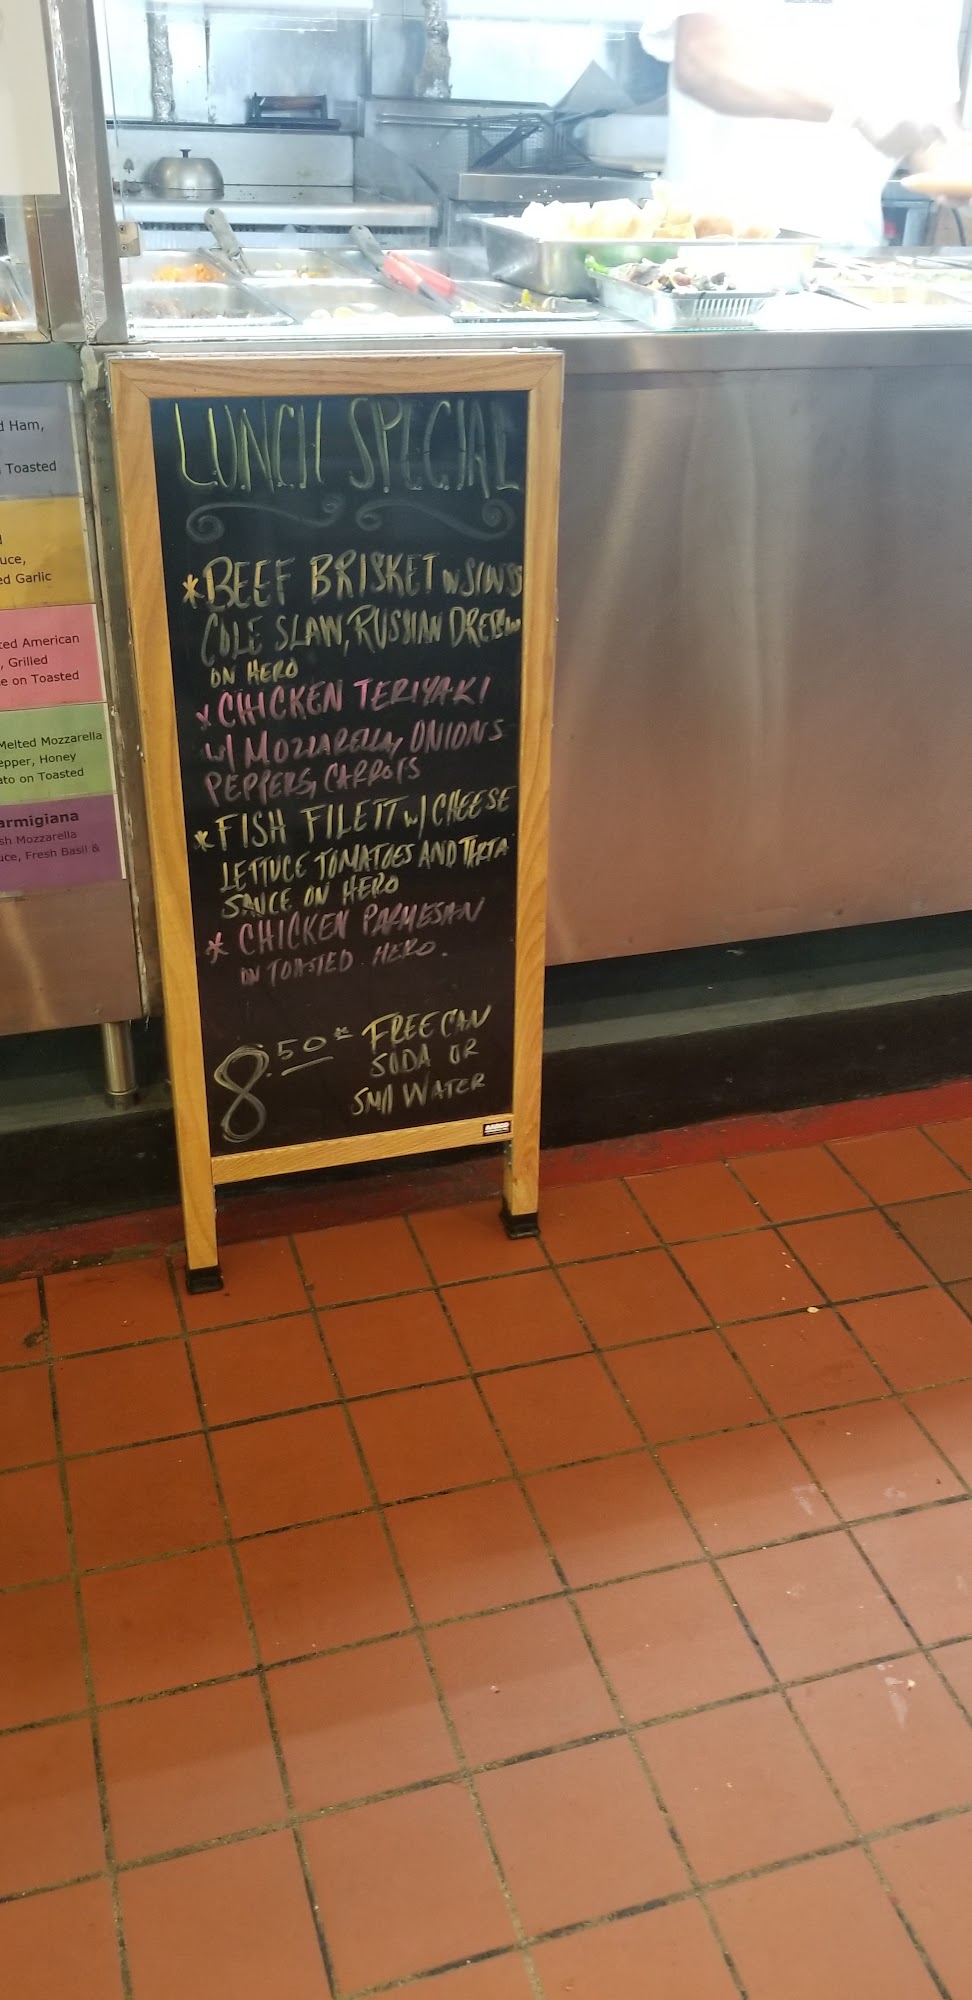 LUNCH SPECIAL
*BEEF BRISKET w SWISS
COLE SLAW, RUSSIAN DRESSING
ON HERO
*CHICKEN TERIYAKI
W/ MOZZARELLA, ONIONS
PEPPERS, CARROTS
*FISH FILETT W/ CHEESE
LETTUCE TOMATOES AND TARTA
SAUCE ON HERO
* CHICKEN PARMESAN
ON TOASTED HERO.
8.50* FREE CAN
SODA OR
SMll WATER
d Ham,
Toasted
uce,
ed Garlic
ted American
, Grilled
e on Toasted
Melted Mozzarella
epper, Honey
ato on Toasted
armigiana
sh Mozzarella
uce, Fresh Basil &